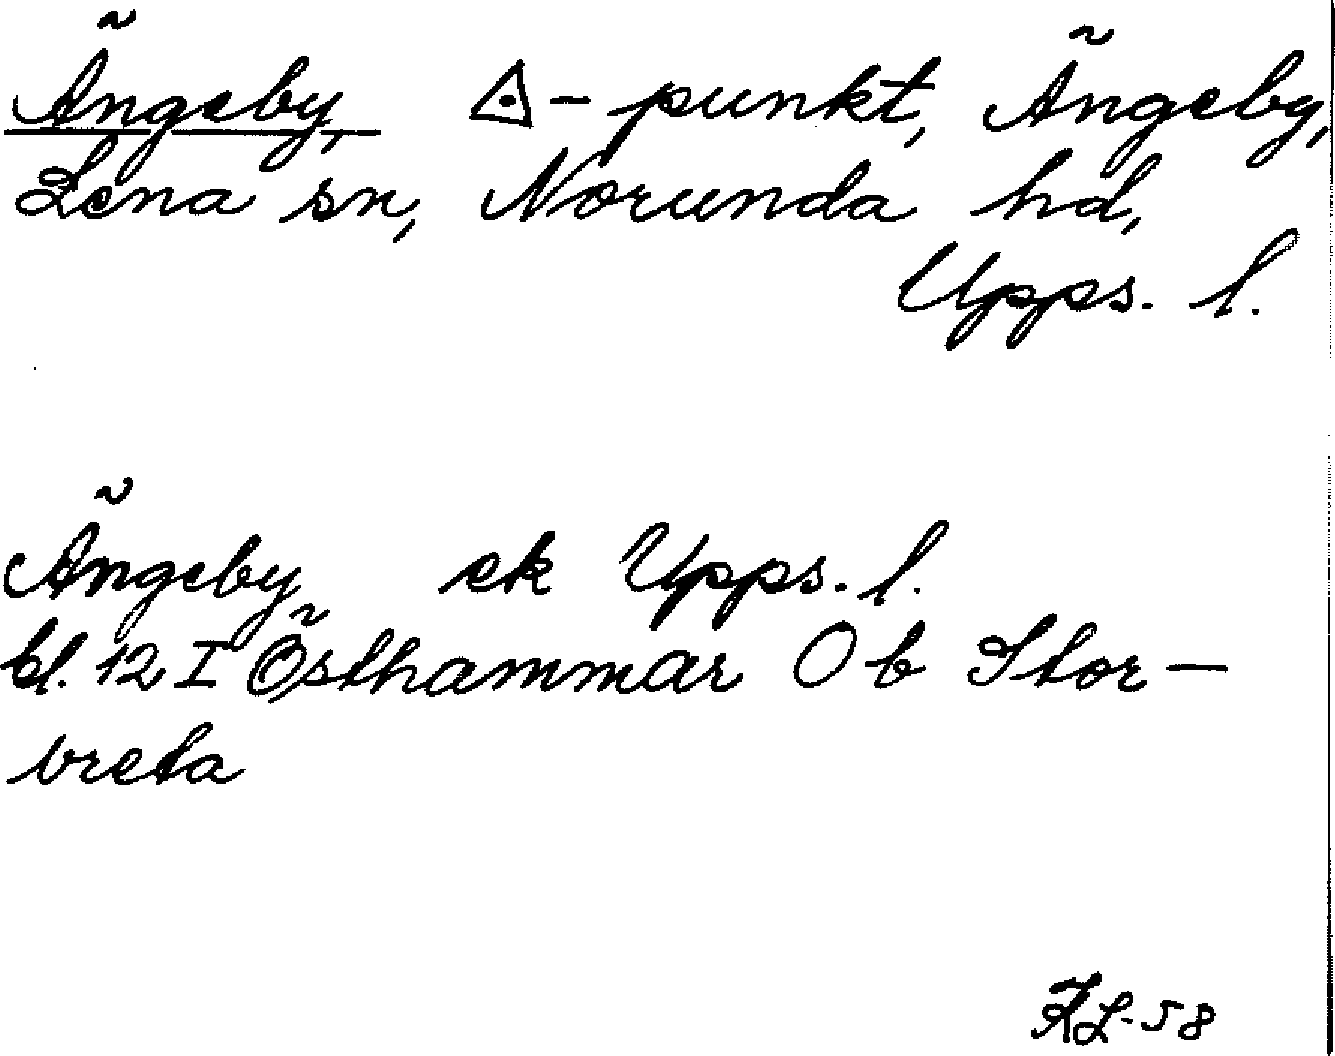 Ängeby, ◬-punkt, Ängeby,
Lena sn, Norunda hd,
Upps. l.
Ängeby ek Upps. l.
bl. 12 I Östhammar O b Stor-
vreta
KL-58